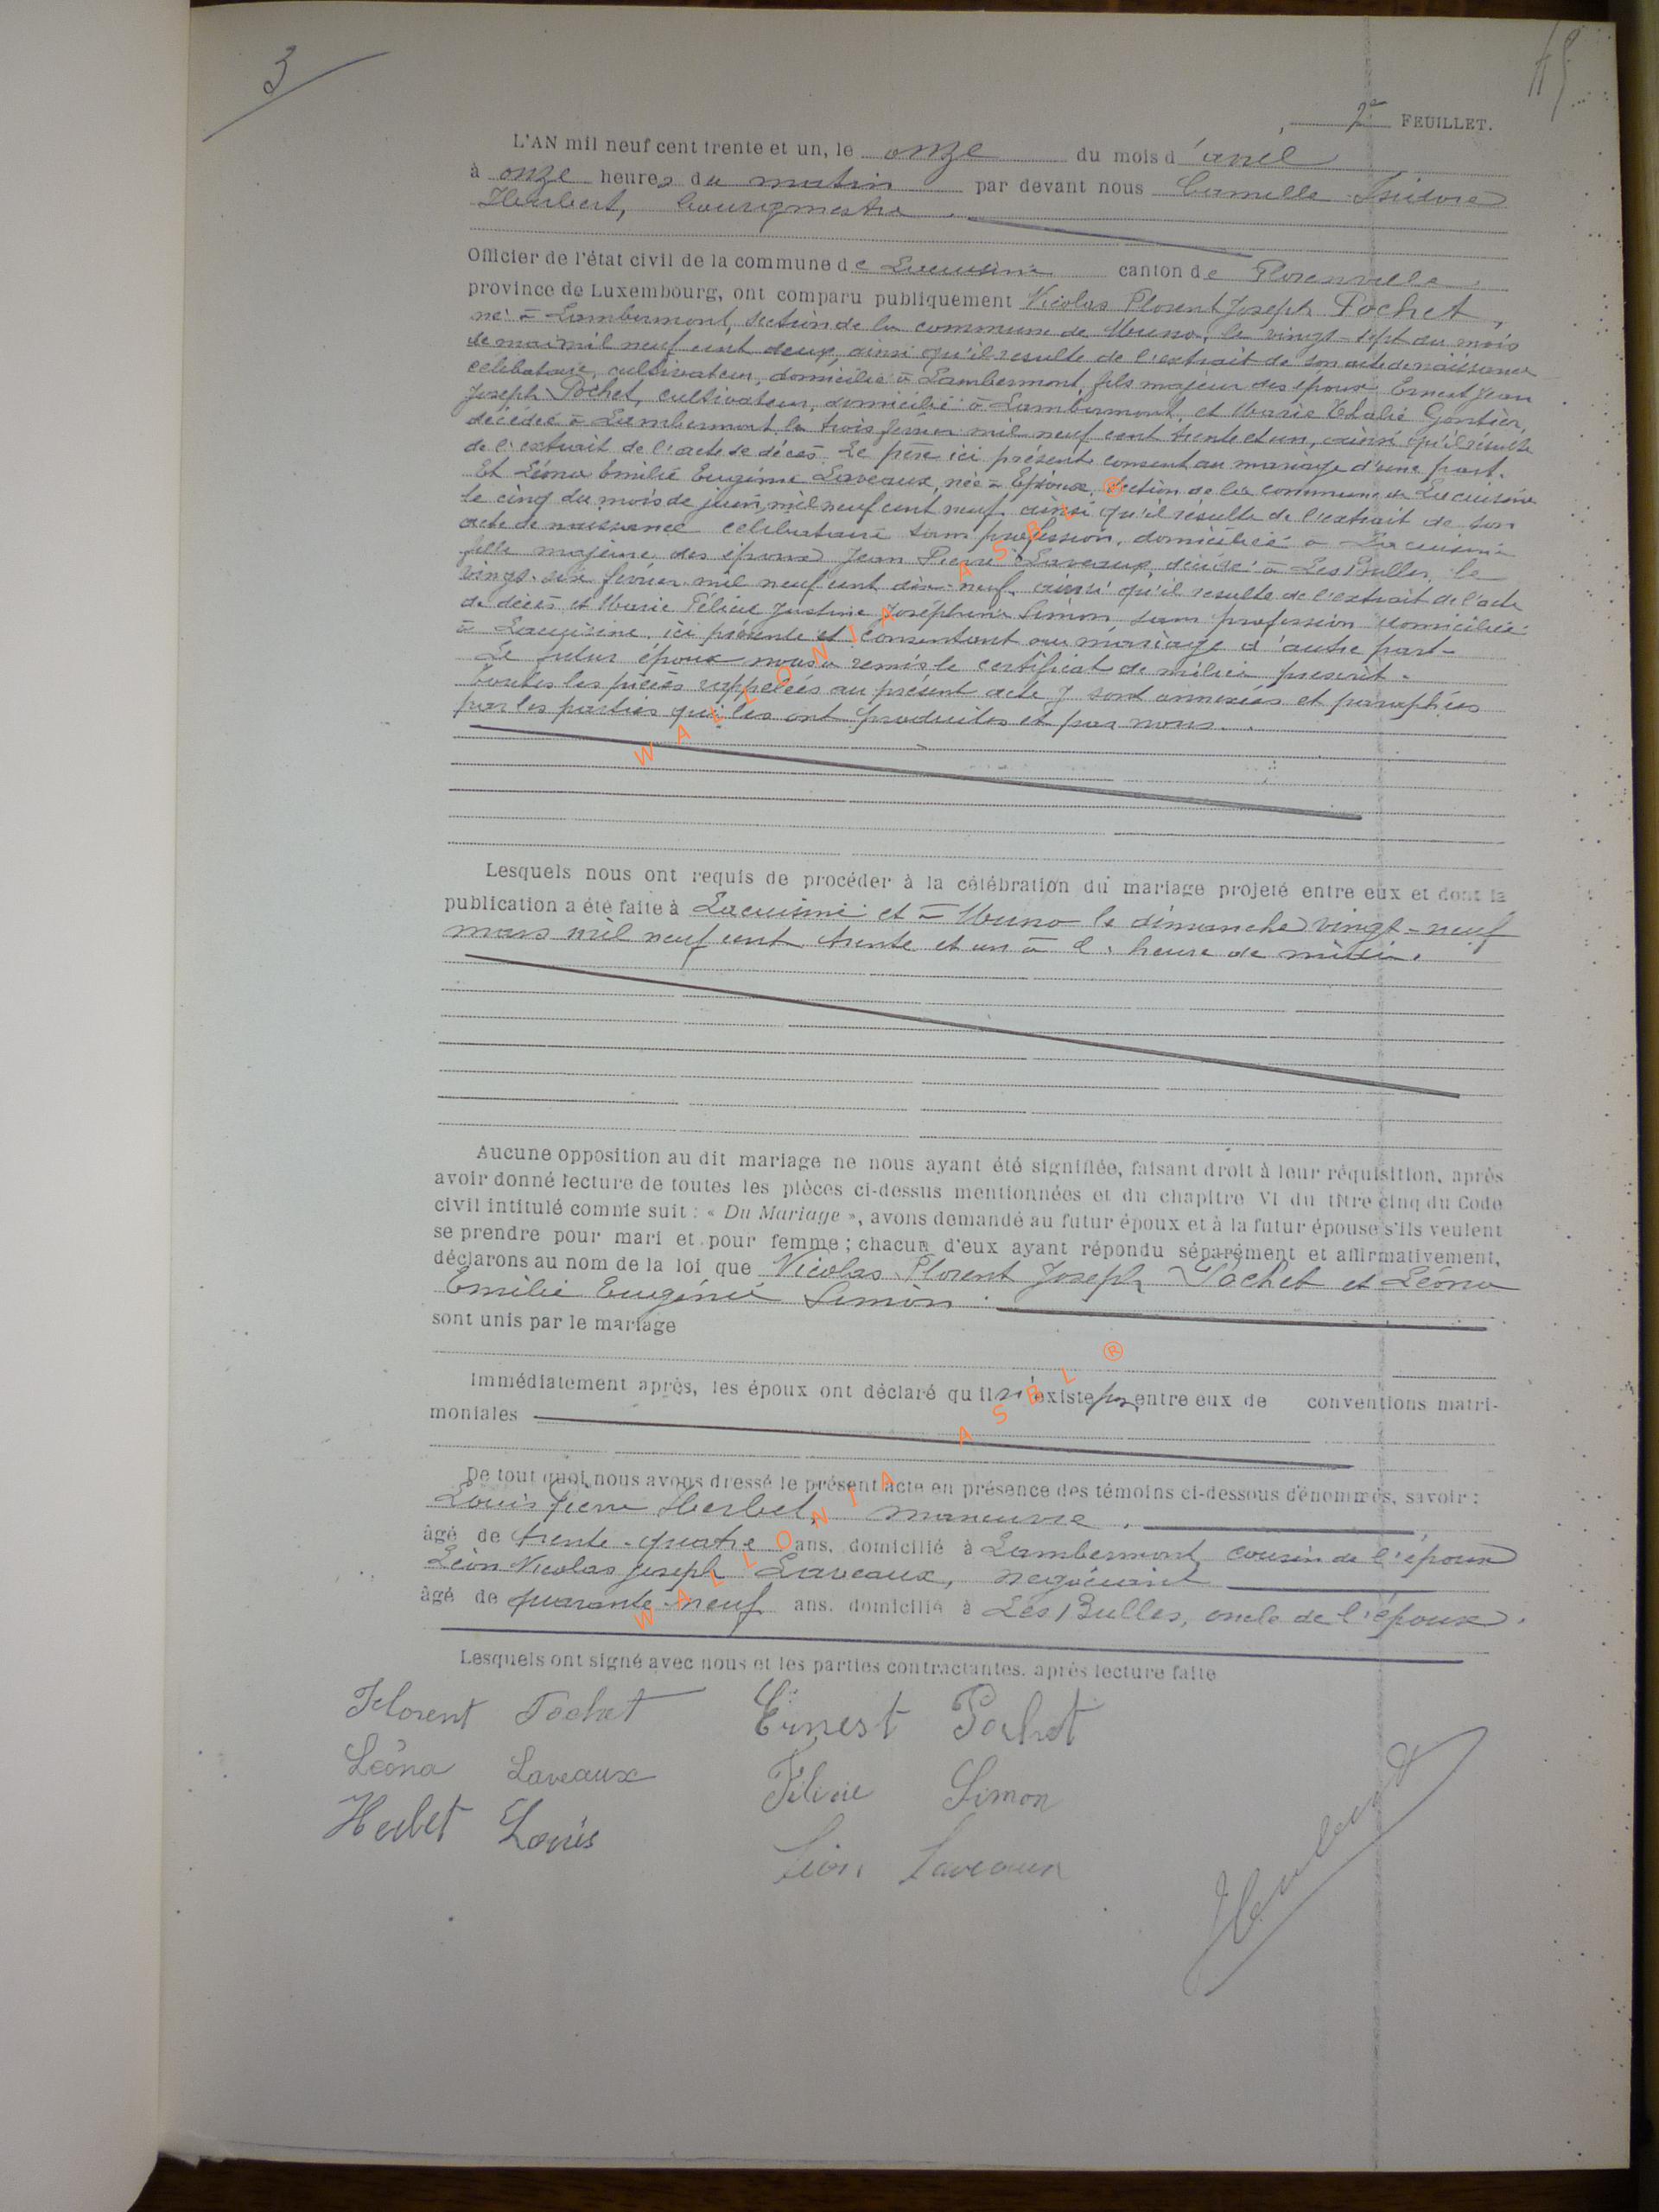 3
2e FEUILLET.
L'AN mil neuf cent trente et un, le onze du mois d'avril
à onze heures du matin par devant nous Camille Isidore
Herbert, bourgmestre.
Officier de l'état civil de la commune de Lacuisine canton de Florenville,
province de Luxembourg, ont comparu publiquement Nicolas Florent Joseph Pochet,
né à Lambermont, section de la commune de Muno, le vingt-sept du mois
de mai mil neuf cent deux, ainsi qu'il resulte de l'extrait de son acte de naissance
célibataire, cultivateur, domicilié à Lambermont, fils majeur des époux Ernest Jean
Joseph Pochet, cultivateur, domicilié à Lambermont, et Marie Gontier,
décédée à Lambermont le trois février mil neuf cent trente et un, ainsi qu'il résulte
de l'extrait de l'acte de décès. Le père ici présent consent au mariage d'une part.
Et Léona Emilie Eugénie Laveaux, née à section de la commune de Lacuisine
le cinq du mois de juin mil neuf cent neuf ainsi qu'il résulte de l'extrait de son
acte de naissance célibataire sans profession, domiciliée à Lacuisine
fille majeure des époux Jean Pierre Laveaux, décédé à Les Bulles, le
vingt-six février mil neuf cent dix-neuf, ainsi qu'il resulte de l'extrait de l'acte
de décès et Marie Félicie Justine Joséphine Simon sans profession domiciliée
à Lacuisine, ici présente et consentant au mariage d'autre part-
Le futur époux nous a remis le certificat de milice prescrit.
Toutes les pièces rappelées au présent acte y sont annexées et paraphées
par les parties qui les ont produites et par nous.
WALLONIA ASBL ®
Lesquels nous ont requis de procéder à la célébration du mariage projeté entre eux et dont la
publication a été faite à Lacuisine et à Muno le dimanche vingt-neuf
mars mil neuf cent trente et un à l'heure de midi.
Aucune opposition au dit mariage ne nous ayant été signifiée, faisant droit à leur réquisition, après
avoir donné lecture de toutes les pièces ci-dessus mentionnées et du chapitre VI du titre cinq du Code
civil intitulé comme suit : « Du Mariage », avons demandé au futur époux et à la futur épouse s'ils veulent
se prendre pour mari et pour femme ; chacun d'eux ayant répondu séparément et affirmativement,
déclarons au nom de la loi que Nicolas Florent Joseph Pochet et Léona
Emilie Eugénie Simon.
sont unis par le mariage
Immédiatement après, les époux ont déclaré qu'il n'existe pas entre eux de conventions matri-
moniales
De tout quoi nous avons dressé le présent acte en présence des témoins ci-dessous dénommés, savoir :
Louis Pierre Herbet, manœuvre,
âgé de trente-quatre ans, domicilié à Lambermont, cousin de l'époux
Léon Nicolas Joseph Laveaux, négociant
âgé de quarante-neuf ans, domicilié à Les Bulles, oncle de l'époux.
WALLONIA ASBL ®
Lesquels ont signé avec nous et les parties contractantes, après lecture faite
Florent Pochet Ernest Pochet
Léona Laveaux Félicie Simon
Herbet Louis Léon Laveaux
Herbert